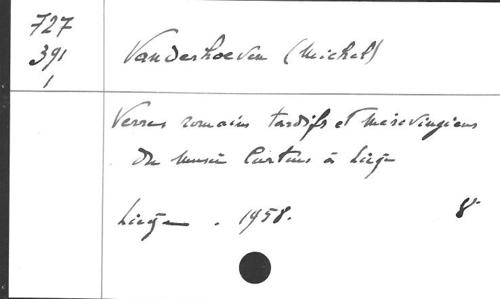 727
391
1
Vanderhoeven (Michel)
Verres romains tardifs et mérovingiens
du musée Curtius à Liège
Liège . 1958. 8°